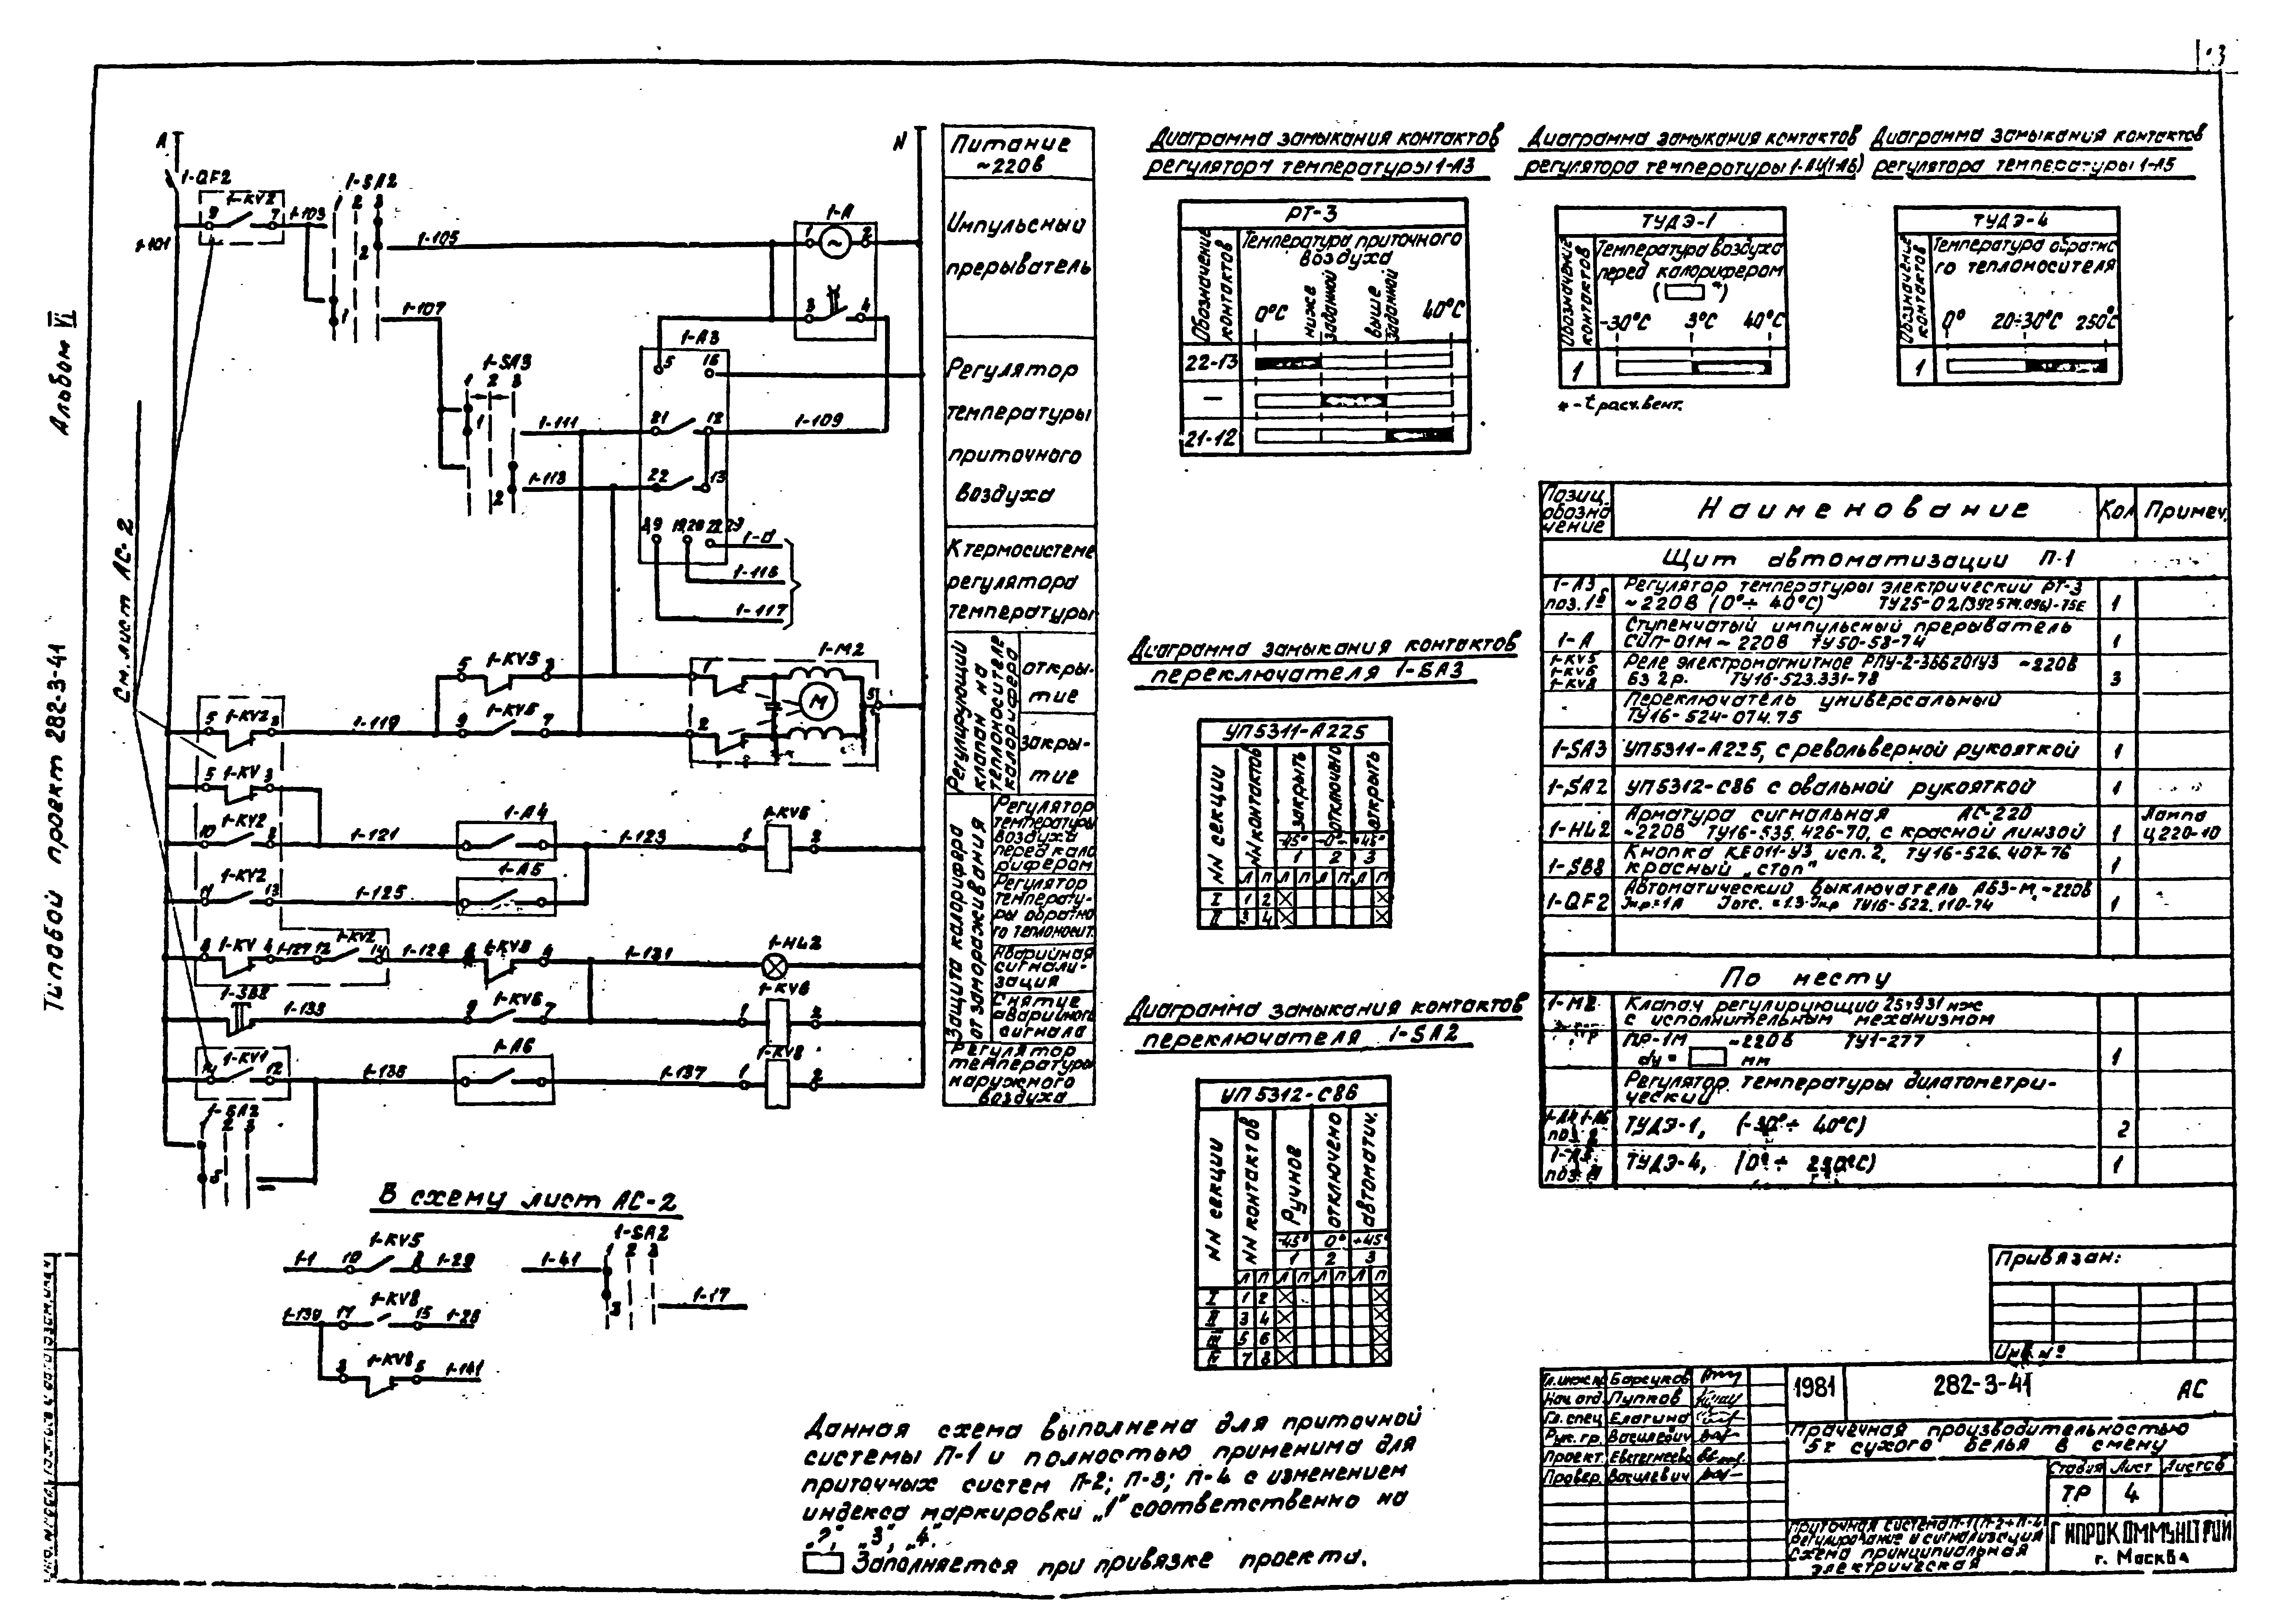 Альбом VI
Типовой проект 282-3-41
См. лист АС-2
А
N
1-QF2
1-KV2
9
7
1-101
1-103
1-SA2
1 2 3
2
1
1-105
1-107
1-А
1
2
3
4
1-А3
5
16
1-SA3
1 2 3
1
2
1-111
21
12
1-109
1-113
22
13
1-117
5
1-KV5
3
1-119
9
7
1-М2
1
2
М
5
1-KV2
5
1-KV
3
10
1-KV2
8
1-121
1-А4
1-123
1
1-KV6
2
1-KV2
13
1-125
1-А5
1-KV
4
1-127
12
1-KV2
14
4
1-131
1-HL2
1-133
9
1-KV6
7
1
2
1-KV1
12
1-А6
1-137
1
1-KV8
2
1-SA2
2 3
Питание
~220в
Импульсный
прерыватель
Регулятор
температуры
приточного
воздуха
К термосистеме
регулятора
температуры
Регулирующий
клапан на
теплоносителе
калорифера
откры-
тие
закры-
тие
Защита калорифера
от замораживания
Регулятор
температуры
воздуха
перед кало
рифером
Регулятор
температу-
ры обратно
го теплоносит.
Аварийная
сигнали-
зация
Снятие
аварийного
сигнала
Регулятор
температуры
наружного
воздуха
В схему лист АС-2
1-1
10
1-KV5
8
1-29
1-41
1-SA2
1 2 3
3
1-17
1-KV8
15
3
1-KV8
5
1-141
Диаграмма замыкания контактов
регулятора температуры 1-А3
РТ-3
Обозначение
контактов
Температура приточного
воздуха
0°С
ниже
заданной
выше
заданной
40°С
22-13
—
21-12
Диаграмма замыкания контактов
регулятора температуры 1-А4(1-А6)
ТУДЭ-1
Обозначение
контактов
Температура воздуха
перед калорифером
( *)
-30°С 3°С 40°С
1
*- t расч. вент.
Диаграмма замыкания контактов
регулятора температуры 1-А5
ТУДЭ-4
Обозначение
контактов
Температура обратно
го теплоносителя
0° 20÷30°С 250°С
1
Диаграмма замыкания контактов
переключателя 1-SA3
УП5311-А225
NN секции
NN контактов
закрыть
отключено
открыть
-45° 0° +45°
1 2 3
Л П Л П Л П Л П
I 1 2
II 3 4
Диаграмма замыкания контактов
переключателя 1-SA2
УП 5312-С86
NN секции
NN контактов
Ручнов
отключено
автоматич.
-45° 0° +45°
1 2 3
Л П Л П Л П Л П
I 1 2
II 3 4
III 5 6
IV 7 8
Позиц.
обозна
чение
Наименование
Кол
Примеч.
Щит автоматизации П-1
1-А3
Регулятор температуры электрический РТ-3
~220В (0°÷ 40°С)
1
1-А
Ступенчатый импульсный прерыватель
СИП-01М ~ 220В ТУ50-58-74
1
1-KV5
1-KV6
1-KV8
Реле электромагнитное РПУ-2-366201У3 ~220В
6з 2р. ТУ16-523.331-78
3
Переключатель универсальный
ТУ16-524-074.75
1-SA3
УП5311-А225, с револьверной рукояткой
1
1-SA2
УП5312-С86 с овальной рукояткой
1
1-HL2
Арматура сигнальная АС-220
~220В ТУ16-535.426-70, с красной линзой
1
Лампа
Ц220-10
1-SB8
Кнопка КЕ011-У3 исп. 2, ТУ16-526.407-76
красный „стоп"
1
1-QF2
Автоматический выключатель АБ3-М, ~220В
Iнр=1А Iотс.=1.3 Iнр ТУ16-522.110-74
1
По месту
1-М2
Клапан регулирующий 25ч931нж
с исполнительным механизмом
ПР-1М ~220В ТУ1-277
dу= мм
1
Регулятор температуры дилатометри-
ческий
ТУДЭ-1, (-30°÷ 40°С)
2
ТУДЭ-4, (0°÷ 250°С)
1
Данная схема выполнена для приточной
системы П-1 и полностью применима для
приточных систем П-2; П-3; П-4 с изменением
индекса маркировки „1" соответственно на
„2", „3", „4".
Заполняется при привязке проекта.
Привязан:
Инв. №
Гл.инж.пр Барсуков
Нач. отд. Пупков
Гл. спец Елагина
Рук. гр. Василевич
Проект.
Провер. Василевич
1981
282-3-41
АС
Прачечная производительностью
5т сухого белья в смену
Стадия Лист Листов
ТР 4
Приточная система П-1(П-2÷П-4)
Регулирование и сигнализация
Схема принципиальная
электрическая
ГИПРОКОММУНСТРОЙ
г. Москва